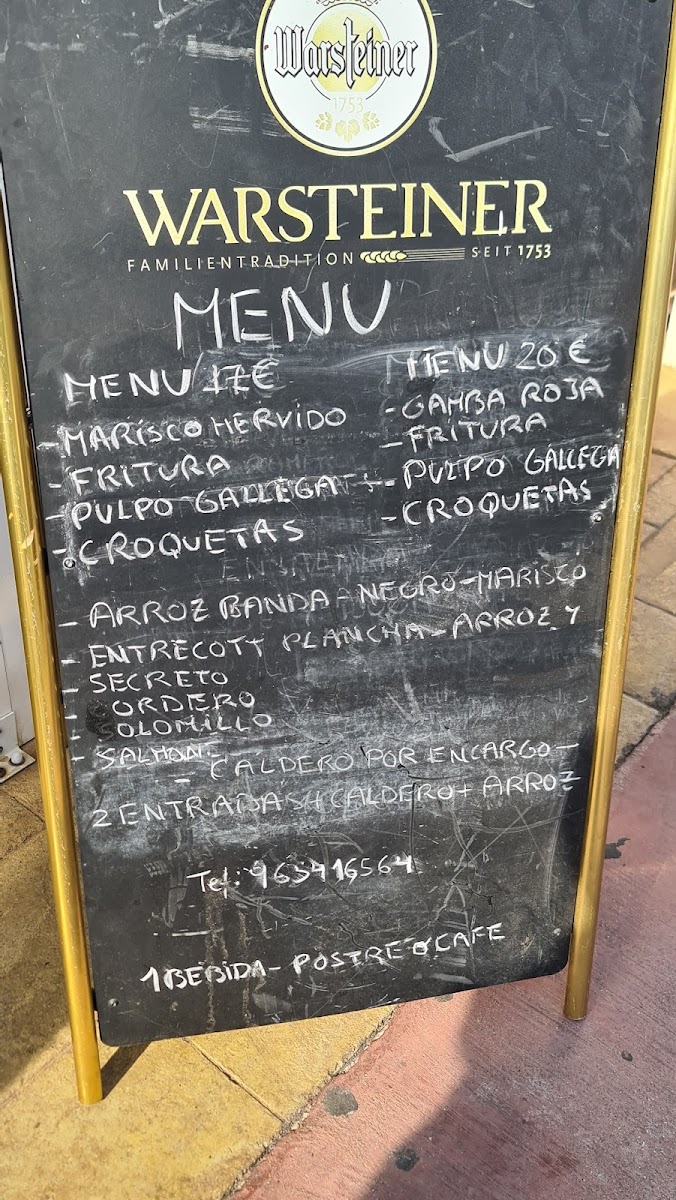 Warsteiner
1753
WARSTEINER
FAMILIENTRADITION SEIT 1753
MENU
MENU 17€
-MARISCO HERVIDO
-FRITURA
-PULPO GALLEGA
-CROQUETAS
MENU 20€
-GAMBA ROJA
-FRITURA
-PULPO GALLEGA
-CROQUETAS
- ARROZ BANDA - NEGRO - MARISCO
- ENTRECOTT PLANCHA - ARROZ Y
- SECRETO
- CORDERO
- SOLOMILLO
- SALMON
- CALDERO POR ENCARGO -
2 ENTRADAS + CALDERO + ARROZ
Tel: 963416564
1 BEBIDA - POSTRE O CAFE